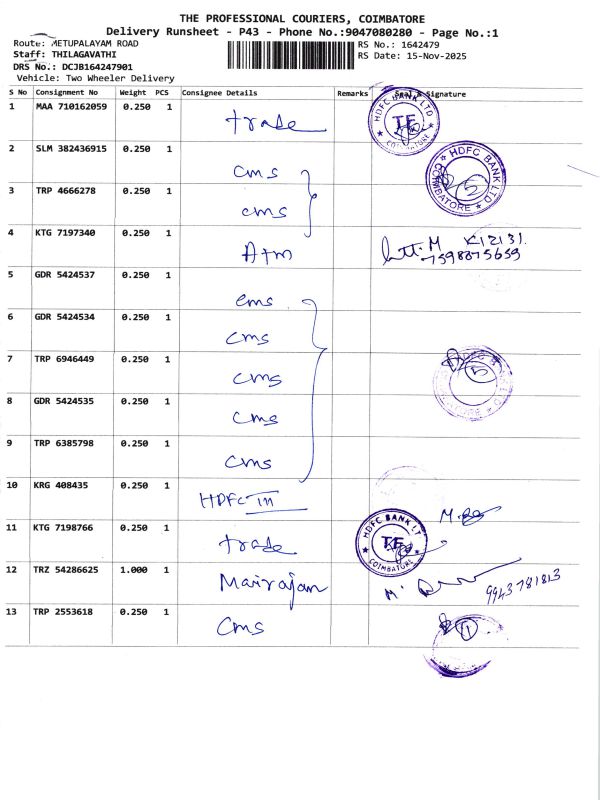 THE PROFESSIONAL COURIERS, COIMBATORE
Delivery Runsheet - P43 - Phone No.:9047080280 - Page No.:1
Route: METUPALAYAM ROAD
RS No.: 1642479
Staff: THILAGAVATHI
RS Date: 15-Nov-2025
DRS No.: DCJB164247901
Vehicle: Two Wheeler Delivery
S No Consignment No Weight PCS Consignee Details Remarks Seal & Signature
1 MAA 710162059 0.250 1 trade HDFC BANK LTD TF COIMBATORE
2 SLM 382436915 0.250 1 cms HDFC BANK LTD COIMBATORE
3 TRP 4666278 0.250 1 cms
4 KTG 7197340 0.250 1 Atm K12131
7598875659
5 GDR 5424537 0.250 1 cms
6 GDR 5424534 0.250 1 cms
7 TRP 6946449 0.250 1 cms 5
8 GDR 5424535 0.250 1 cms
9 TRP 6385798 0.250 1 cms
10 KRG 408435 0.250 1 HDFC
11 KTG 7198766 0.250 1 trade HDFC BANK LT TF COIMBATORE
12 TRZ 54286625 1.000 1 Marrajan 9943781813
13 TRP 2553618 0.250 1 cms